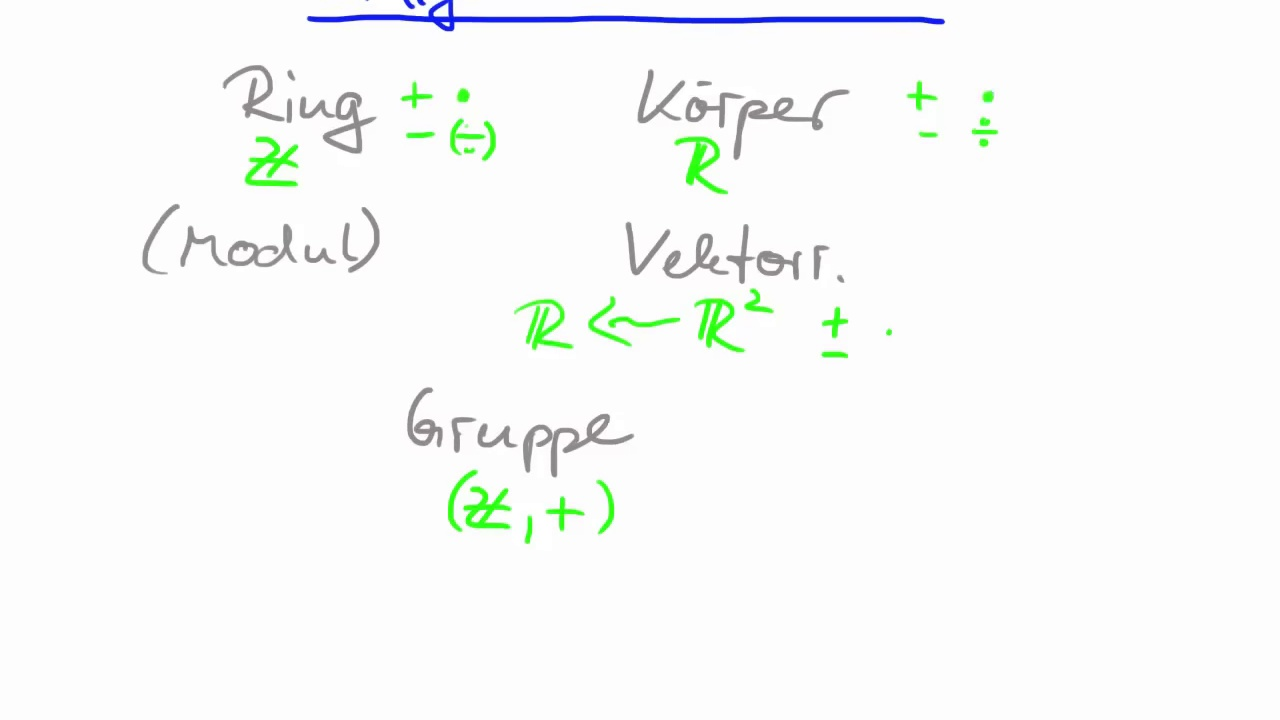 Ring + · Körper + ·
− (÷) − ÷
ℤ ℝ
(Modul) Vektorr.
ℝ ← ℝ² + ·
−
Gruppe
(ℤ, +)